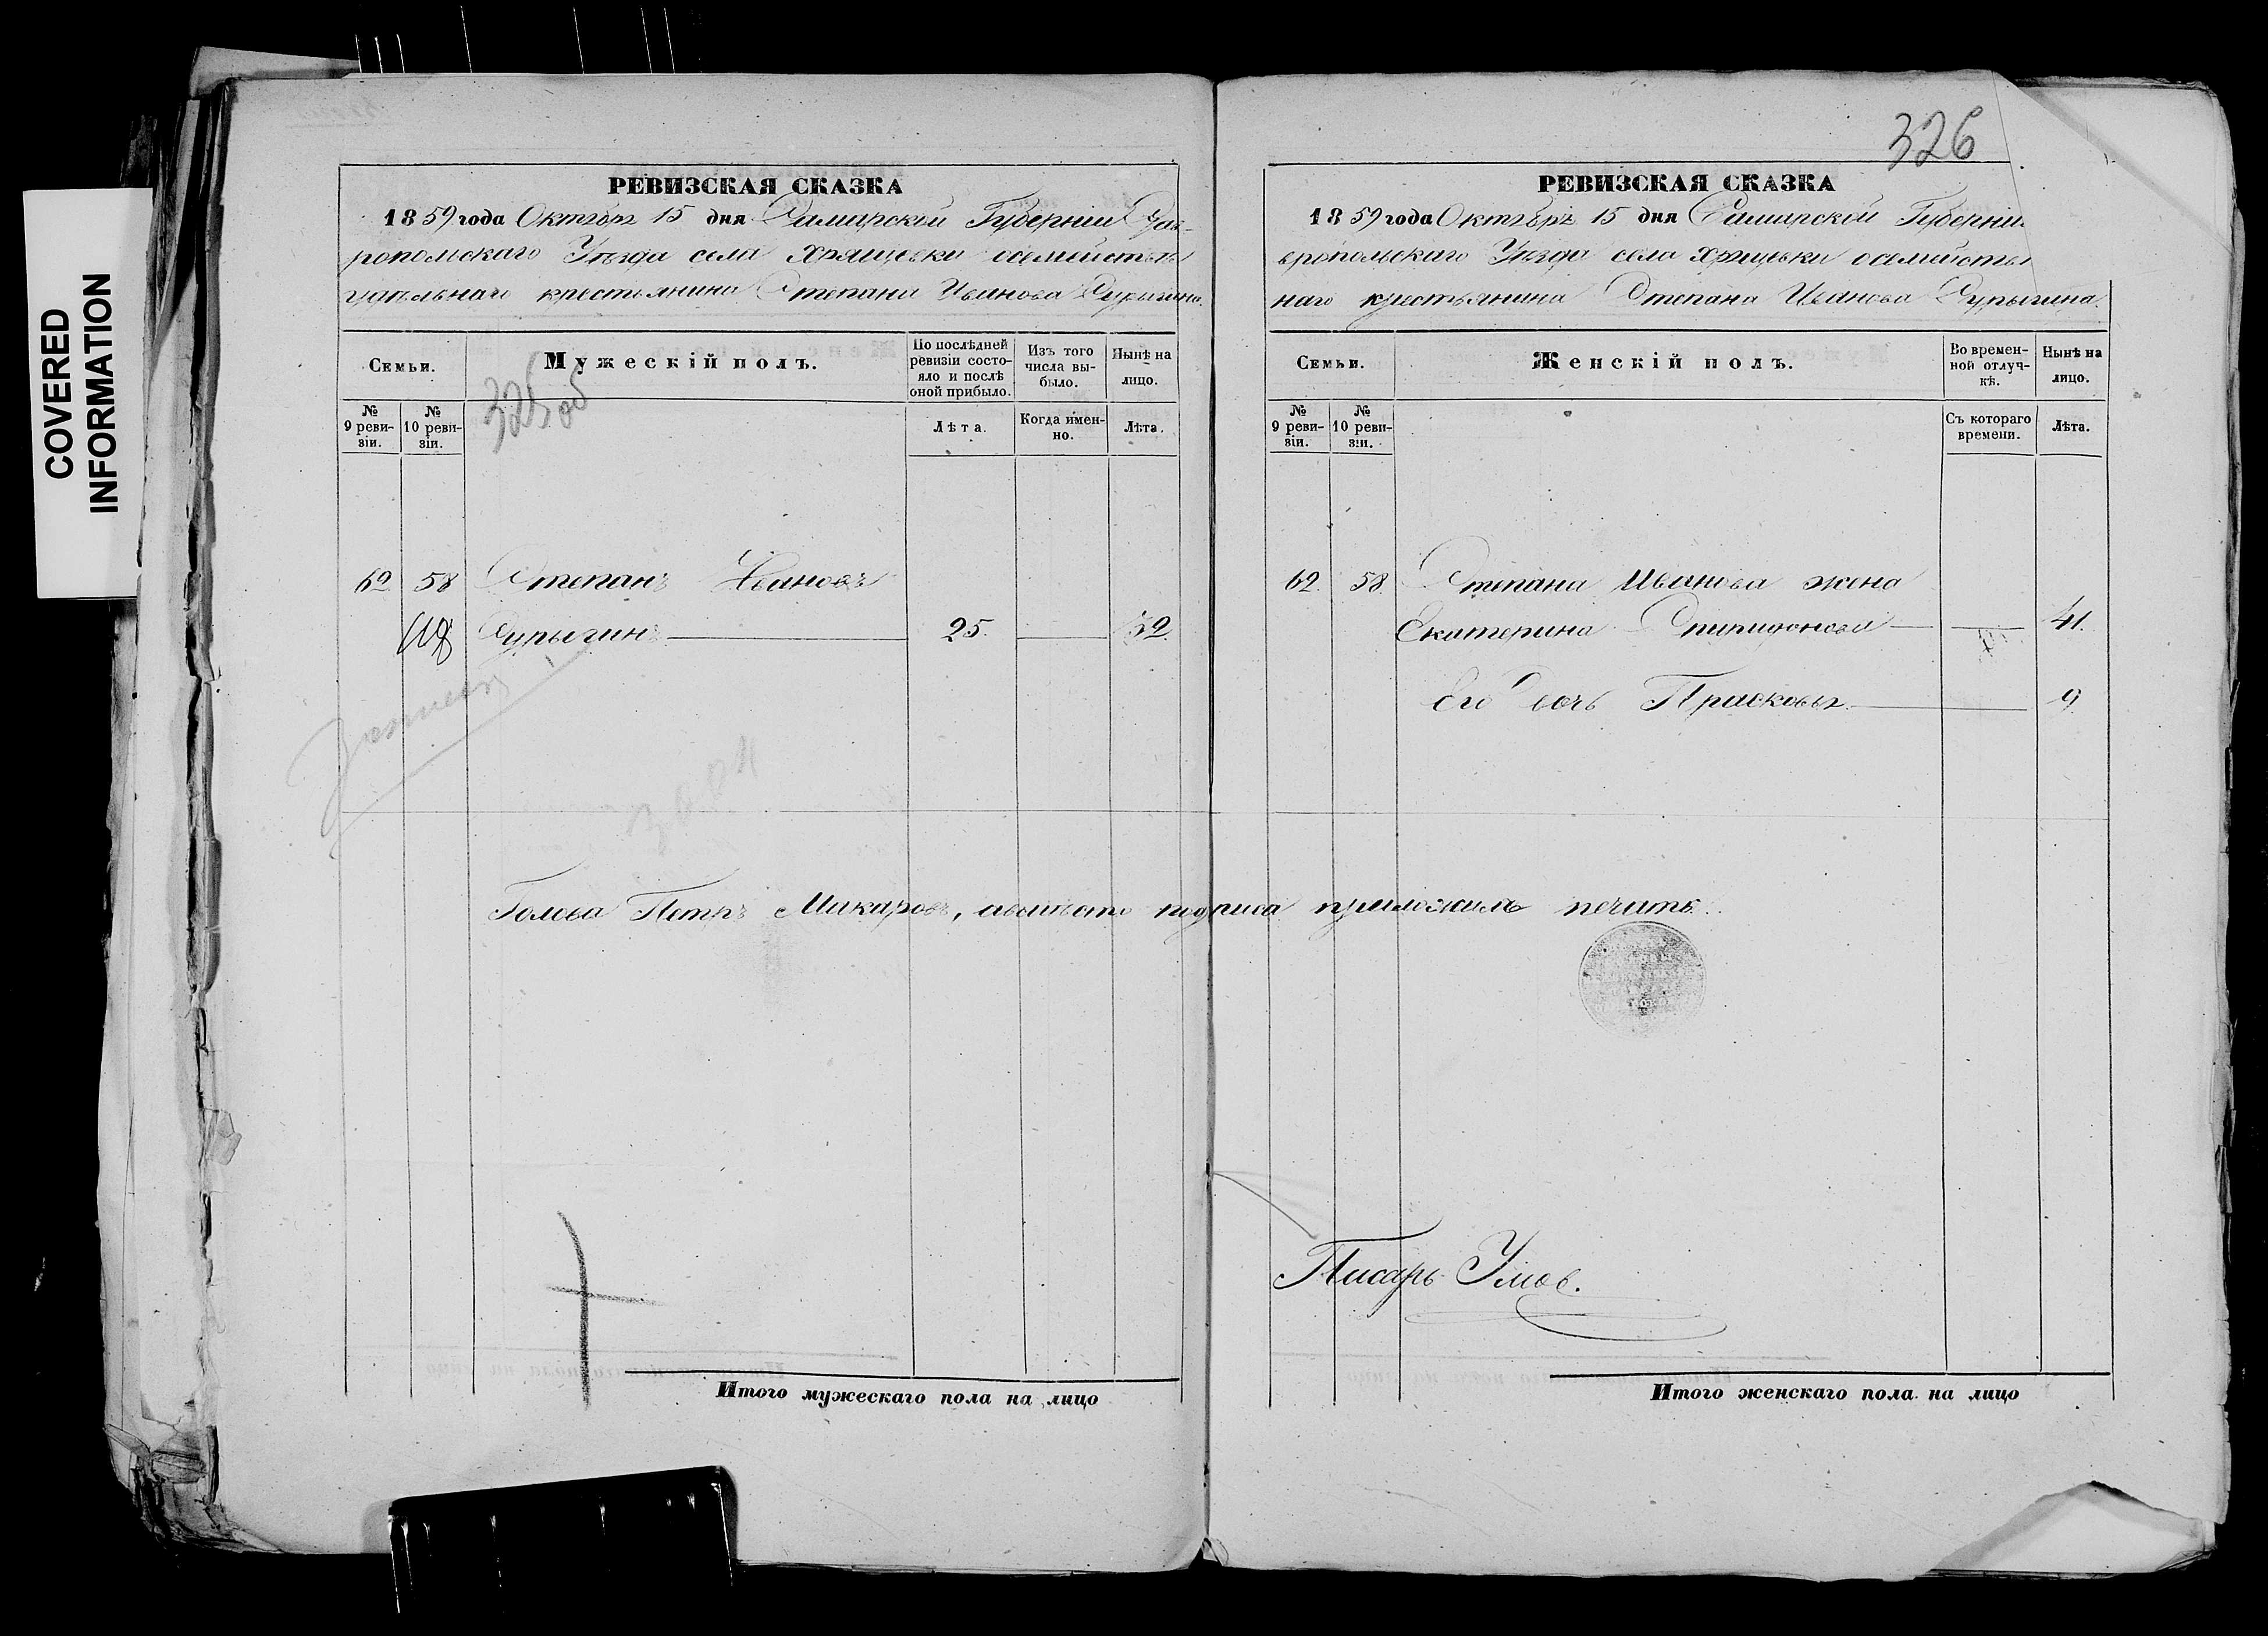 COVERED
INFORMATION
326
РЕВИЗСКАЯ СКАЗКА
1859 года Октября 15 дня Самарской Губерніи Став-
ропольскаго Уѣзда села Хрящевки
удѣльнаго крестьянина Степана Иванова Сурыгина.
Семьи.
Мужескій полъ.
По послѣдней ревизіи состо-
яло и послѣ оной прибыло.
Изъ того числа вы-
было.
Нынѣ на лицо.
№ 9 реви-
зіи.
№ 10 реви-
зіи.
325об
Лѣта.
Когда имен-
но.
Лѣта.
62 58 Степанъ Ивановъ
118 Сурыгинъ 25. 52.
3004
Голова Петръ Макаровъ, а вмѣсто подписа приложилъ печать.
Итого мужескаго пола на лицо
РЕВИЗСКАЯ СКАЗКА
1859 года Октября 15 дня Самарской Губерніи
вропольскаго Уѣзда села Хрящевки
наго крестьянина Степана Иванова Сурыгина.
Семьи.
Женскій полъ.
Во времен-
ной отлуч-
кѣ.
Нынѣ на лицо.
№ 9 реви-
зіи.
№ 10 реви-
зіи.
Съ котораго времени.
Лѣта.
62. 58. Степана Иванова жена
Екатерина Спиридонова 41.
Его дочь Прасковья 9
Писарь Умов.
Итого женскаго пола на лицо